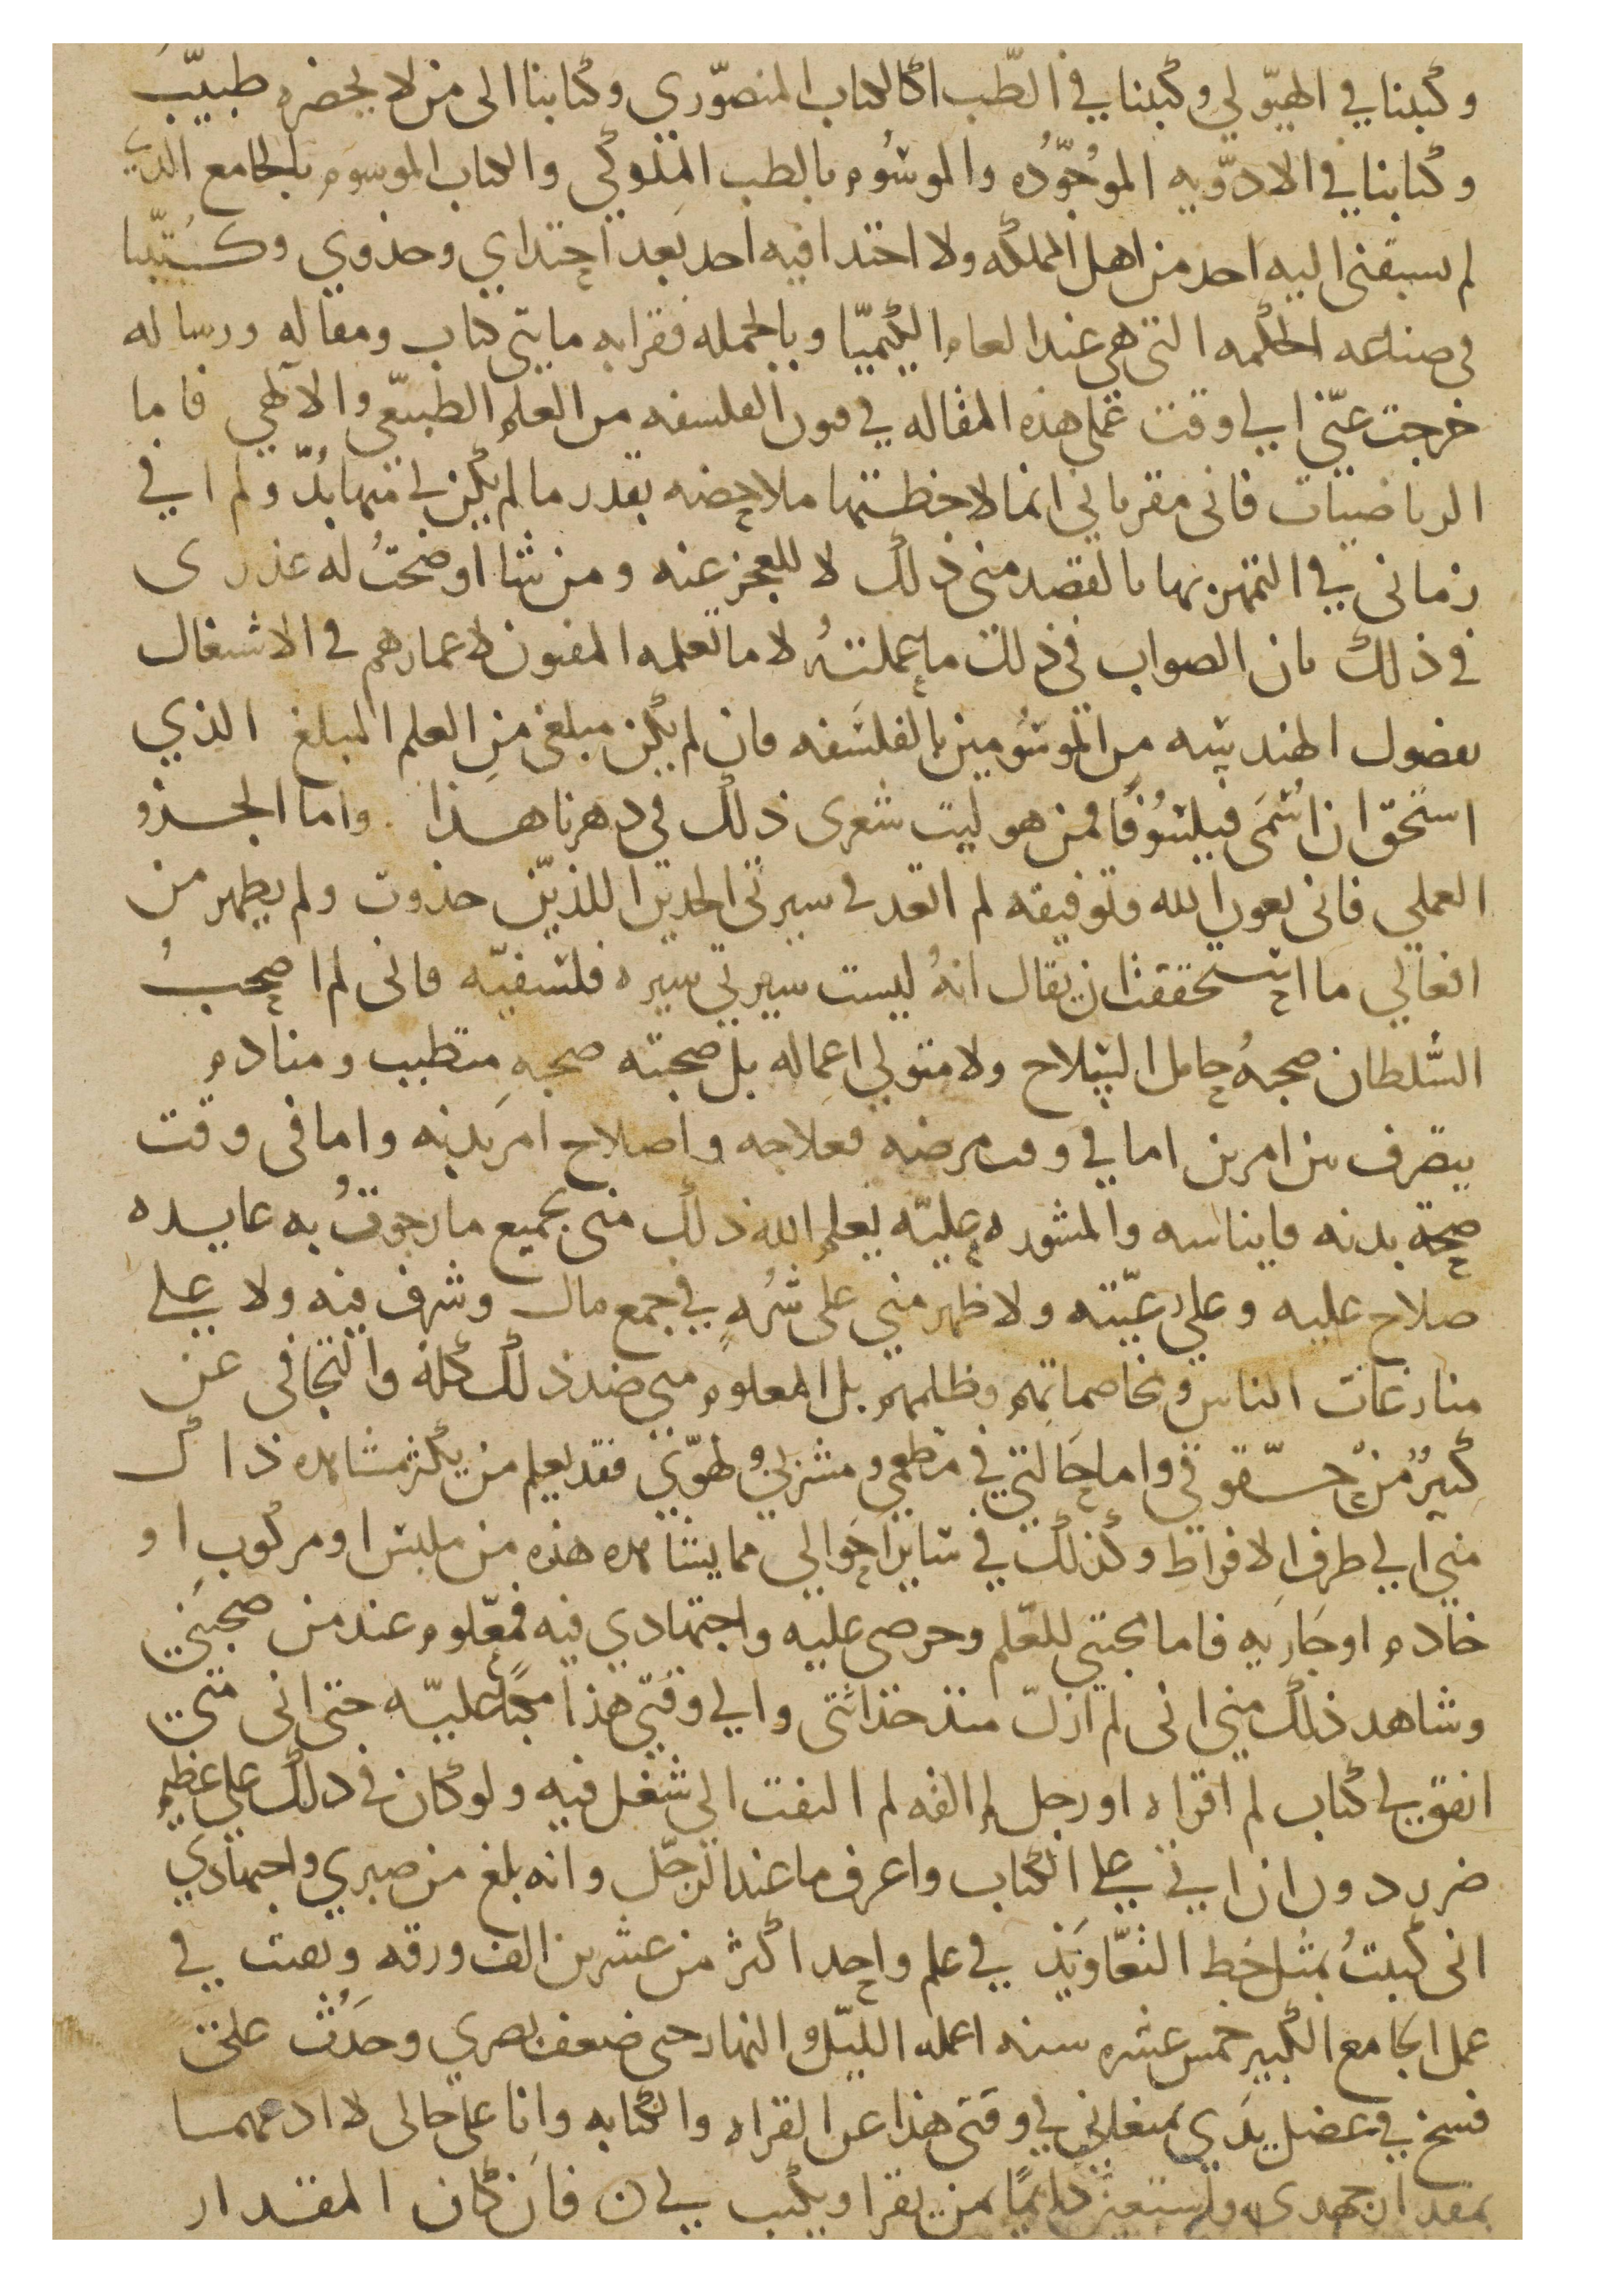 وكبتنا في الهيّولي وكتبنا في الطّب اكالكتاب المنصّوري وكتابنا الى من لا يحضره طبيّب
وكتابنا في الادوّيه الموُجوّده والموسُوم بالطب الملوكي والكتاب الموسوم بالجامع الذي
لم يسبقني اليه احد من اهل المملكه ولا احتدا فيه احد بعد احتداي وحذوي وكتبنا
في صناعه الحكمه التي هي عند العام الكيميّا وبالجمله فقرابه مايتي كتاب ومقاله ورساله
خرجت عنّي الي وقت عملي هذه المقاله في فنون الفلسفه من العلم الطبيعّي والالهي فاما
الرياضيات فاني مقر باني انما لاحظتها ملاحضه بقدر ما لم يكن لي منها بدّ ولم افني
زماني في التمهر بها بالقصد مني ذلك لا للعجز عنه ومن شا اوضحتُ له عذري
في ذلك بان الصواب في ذلك ما عملتهُ لا ما تعلمه المفنون لاعمارهم في الاشتغال
بفضول الهندسه من الموسُومين بالفلسَفه فان لم يكن مبلغي من العلم المبلغ الذي
استحّق ان اُسَمى فيلسُوفًا فمن هو ليت شعري ذلك في دهرنا هـذا واما الجـزو
العملي فاني بعون الله وتوفيقه لم اتعد في سيرتي الحدين اللذيّن حدوت ولم يظهر من
افعالي ما استحققت ان يقال انهُ ليست سيرتي سيره فلسفيّه فاني لم اصحبُ
السَّلطان صحبهُ حامل السِلاح ولا متولي اعماله بل صحبته صحبهِ متطبب ومنادم
يتصرف بين امرين اما في وقت مرضه فعلاجه واصلاح امر بدنه واما في وقت
صحة بدنه فايناسه والمشوره عليّه يعلم الله ذلك مني بجميع ما رجوتُ به عايده
صلاح عليه وعلي رعيّته ولا ظهر مني على شرُهٍ في جمع مال وشرف فيه ولا علي
منازعات الناس ومخاصماتهم وظلمهم بل المعلوم مني ضد ذلك كله والتجافى عن
كثيرٌ منْ حـقّوقي واما حالتي في مطعمي ومشربي ولهوّي فقد يعلم من يكثر مشاهده ذاك
مني الي طرف الافراط وكذلك في ساير احَوالي مما يشاهده هذه من ملبس او مركوب او
خادم او جَاريه فاما محبتي للعّلم وحرصي عليه واجتهادي فيه فمعّلوم عند من صحبنَي
وشاهد ذلك مني اني لم ازلّ منذ حداثتي والي وقتي هذا مكبًا عليّه حتى اني متى
اتفق لي كتاب لم اقراه او رجل لم القه لم التفت الي شغل فيه ولو كان في ذلك علي عظيم
ضرر دون ان اتي علي الكتاب واعرف ما عند الرجّل وانه بلغ من صبري واجتهادي
اني كتبتُ بمثل خط التعّاويَذ في علم واحد اكثر من عشرين الف ورقه وبقيت في
عمل الجامع الكبير خمس عشره سنه اعمله الليّل والنهار حتى ضعف بصري وحَدُث علي
فسخ في عضل يدَي يمنعاني في وقتى هذا عن القراه والكتابه وانا على حالي لا ادعهمـا
بمقدار جهدي واستعين دايمًا بمن يقرا ويكتب لي ن فان كان المقـدار